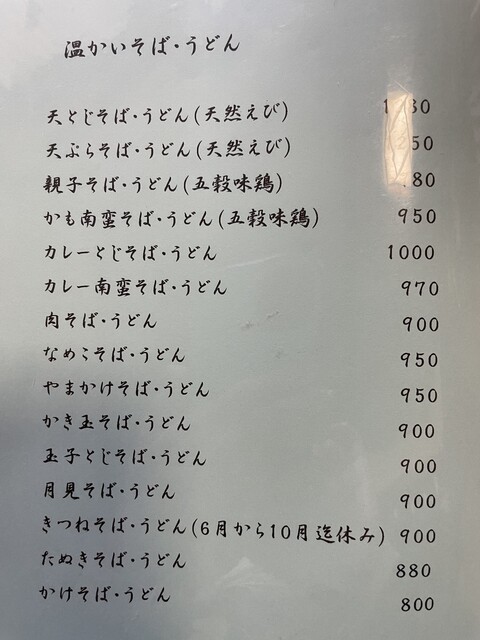 温かいそば・うどん
天とじそば・うどん(天然えび)
天ぷらそば・うどん(天然えび)
親子そば・うどん(五穀味鶏)
かも南蛮そば・うどん(五穀味鶏) 950
カレーとじそば・うどん 1000
カレー南蛮そば・うどん 970
肉そば・うどん 900
なめこそば・うどん 950
やまかけそば・うどん 950
かき玉そば・うどん 900
玉子とじそば・うどん 900
月見そば・うどん 900
きつねそば・うどん(6月から10月迄休み) 900
たぬきそば・うどん 880
かけそば・うどん 800